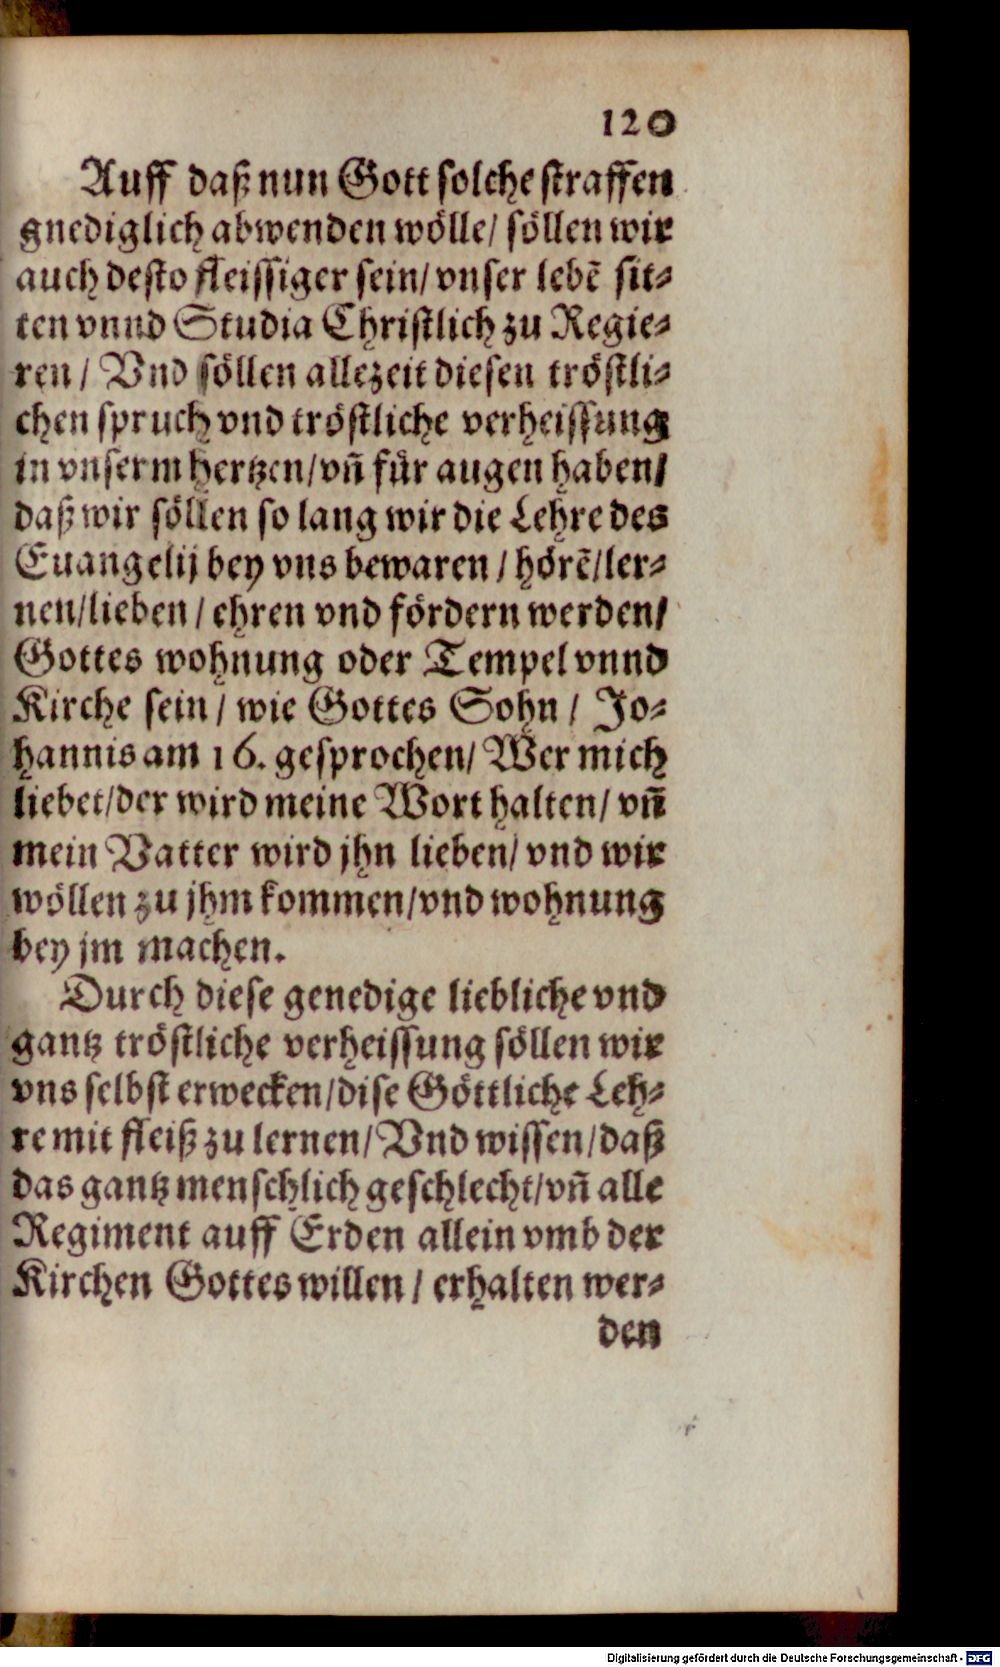 120
Auff daß nun Gott solche straffen
gnediglich abwenden wölle/ söllen wir
auch desto fleissiger sein/ vnser lebẽ sit⸗
ten vnnd Studia Christlich zu Regie⸗
ren / Vnd söllen allezeit diesen tröstli⸗
chen spruch vnd tröstliche verheissung
in vnserm hertzen/ vñ für augen haben/
daß wir söllen so lang wir die Lehre des
Euangelij bey vns bewaren / hörẽ/ ler⸗
nen/ lieben / ehren vnd fördern werden/
Gottes wohnung oder Tempel vnnd
Kirche sein / wie Gottes Sohn / Jo⸗
hannis am 16. gesprochen/ Wer mich
liebet/ der wird meine Wort halten/ vñ
mein Vatter wird jhn lieben/ vnd wir
wöllen zu jhm kommen/ vnd wohnung
bey jm machen.
Durch diese genedige liebliche vnd
gantz tröstliche verheissung söllen wir
vns selbst erwecken/ dise Göttliche Leh⸗
re mit fleiß zu lernen/ Vnd wissen/ daß
das gantz menschlich geschlecht/ vñ alle
Regiment auff Erden allein vmb der
Kirchen Gottes willen / erhalten wer⸗
den
Digitalisierung gefördert durch die Deutsche Forschungsgemeinschaft - DFG